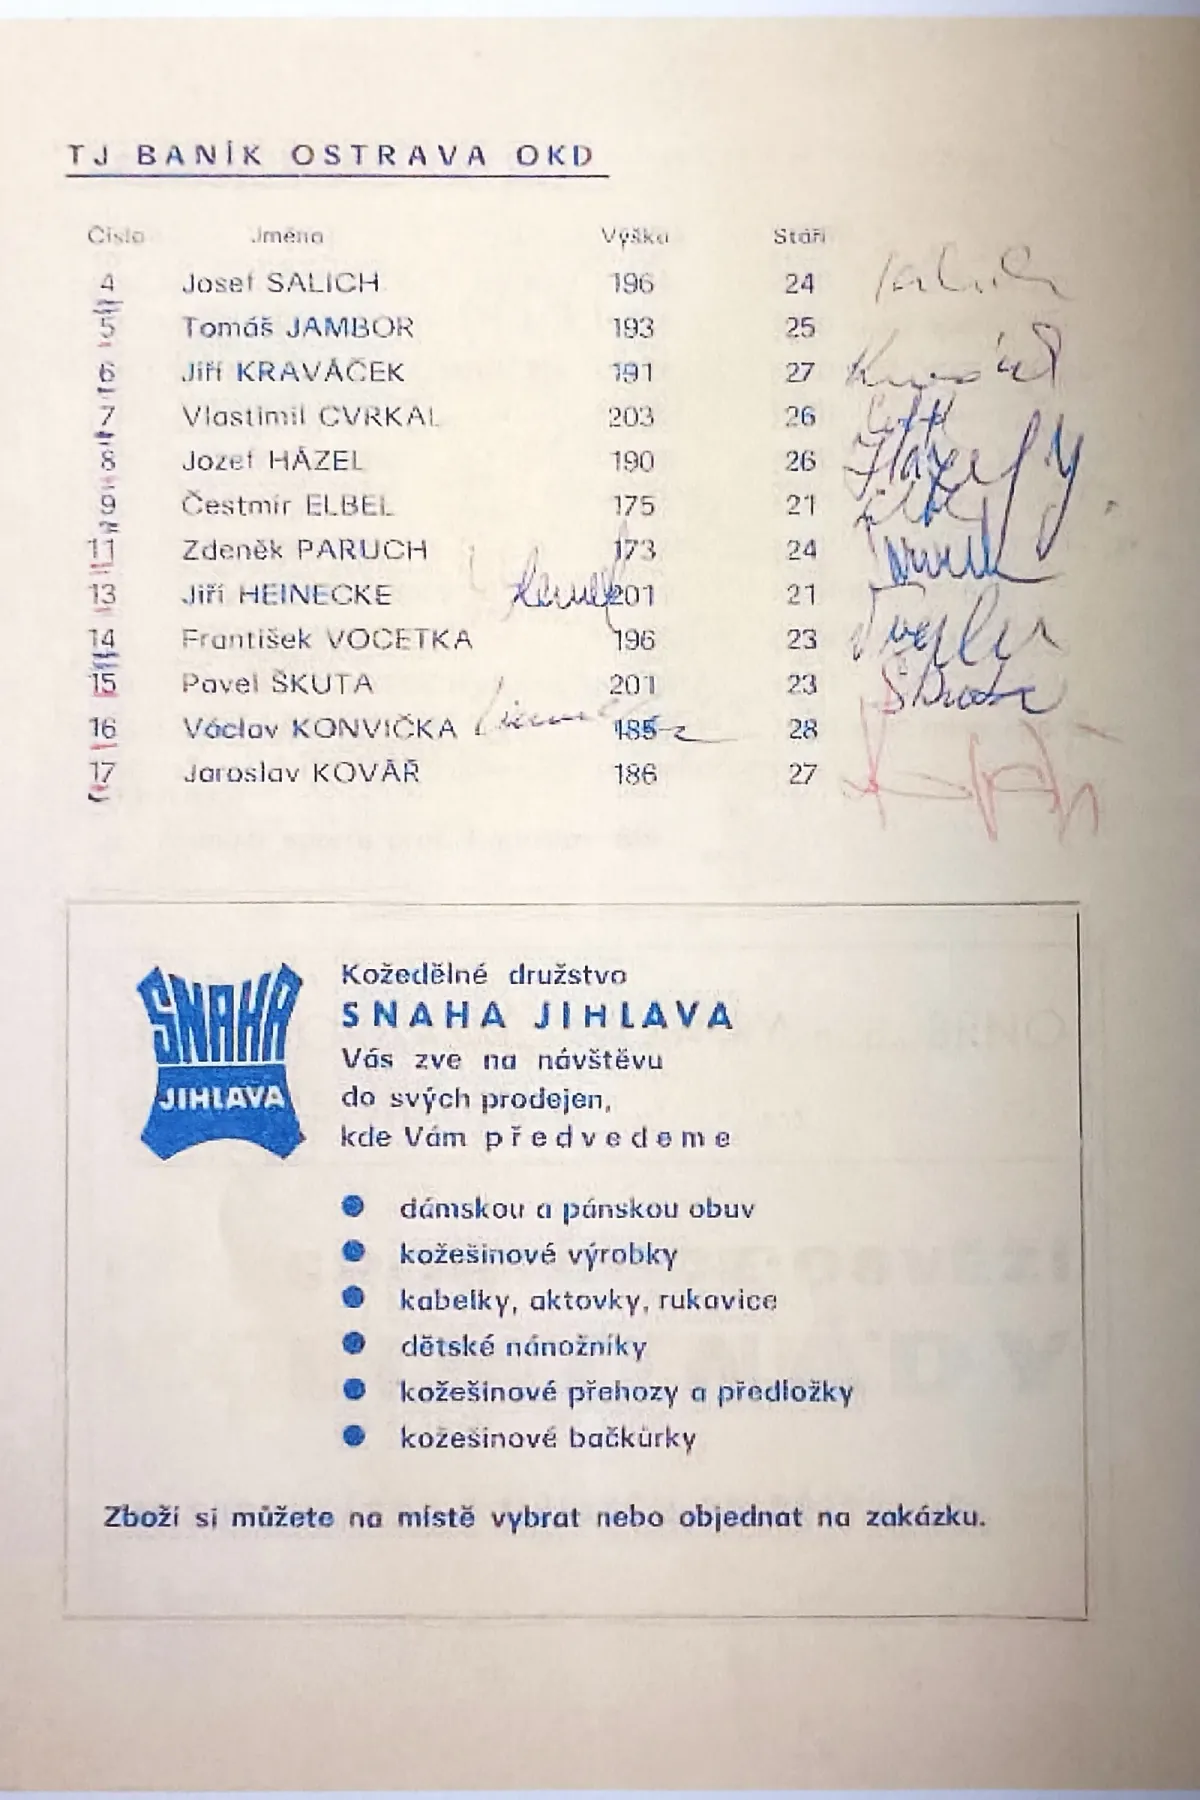 TJ BANÍK OSTRAVA OKD
Číslo Jméno Výška Stáří
4 Josef SALICH 196 24
5 Tomáš JAMBOR 193 25
6 Jiří KRAVÁČEK 191 27
7 Vlastimil CVRKAL 203 26
8 Jozef HÁZEL 190 26
9 Čestmír ELBEL 175 21
11 Zdeněk PARUCH 173 24
13 Jiří HEINECKE 201 21
14 František VOCETKA 196 23
15 Pavel ŠKUTA 201 23
16 Václav KONVIČKA 185 28
17 Jaroslav KOVÁŘ 186 27
SNAHA
JIHLAVA
Kožedělné družstvo
SNAHA JIHLAVA
Vás zve na návštěvu
do svých prodejen,
kde Vám předvedeme
● dámskou a pánskou obuv
● kožešinové výrobky
● kabelky, aktovky, rukavice
● dětské nánožníky
● kožešinové přehozy a předložky
● kožešinové bačkůrky
Zboží si můžete na místě vybrat nebo objednat na zakázku.